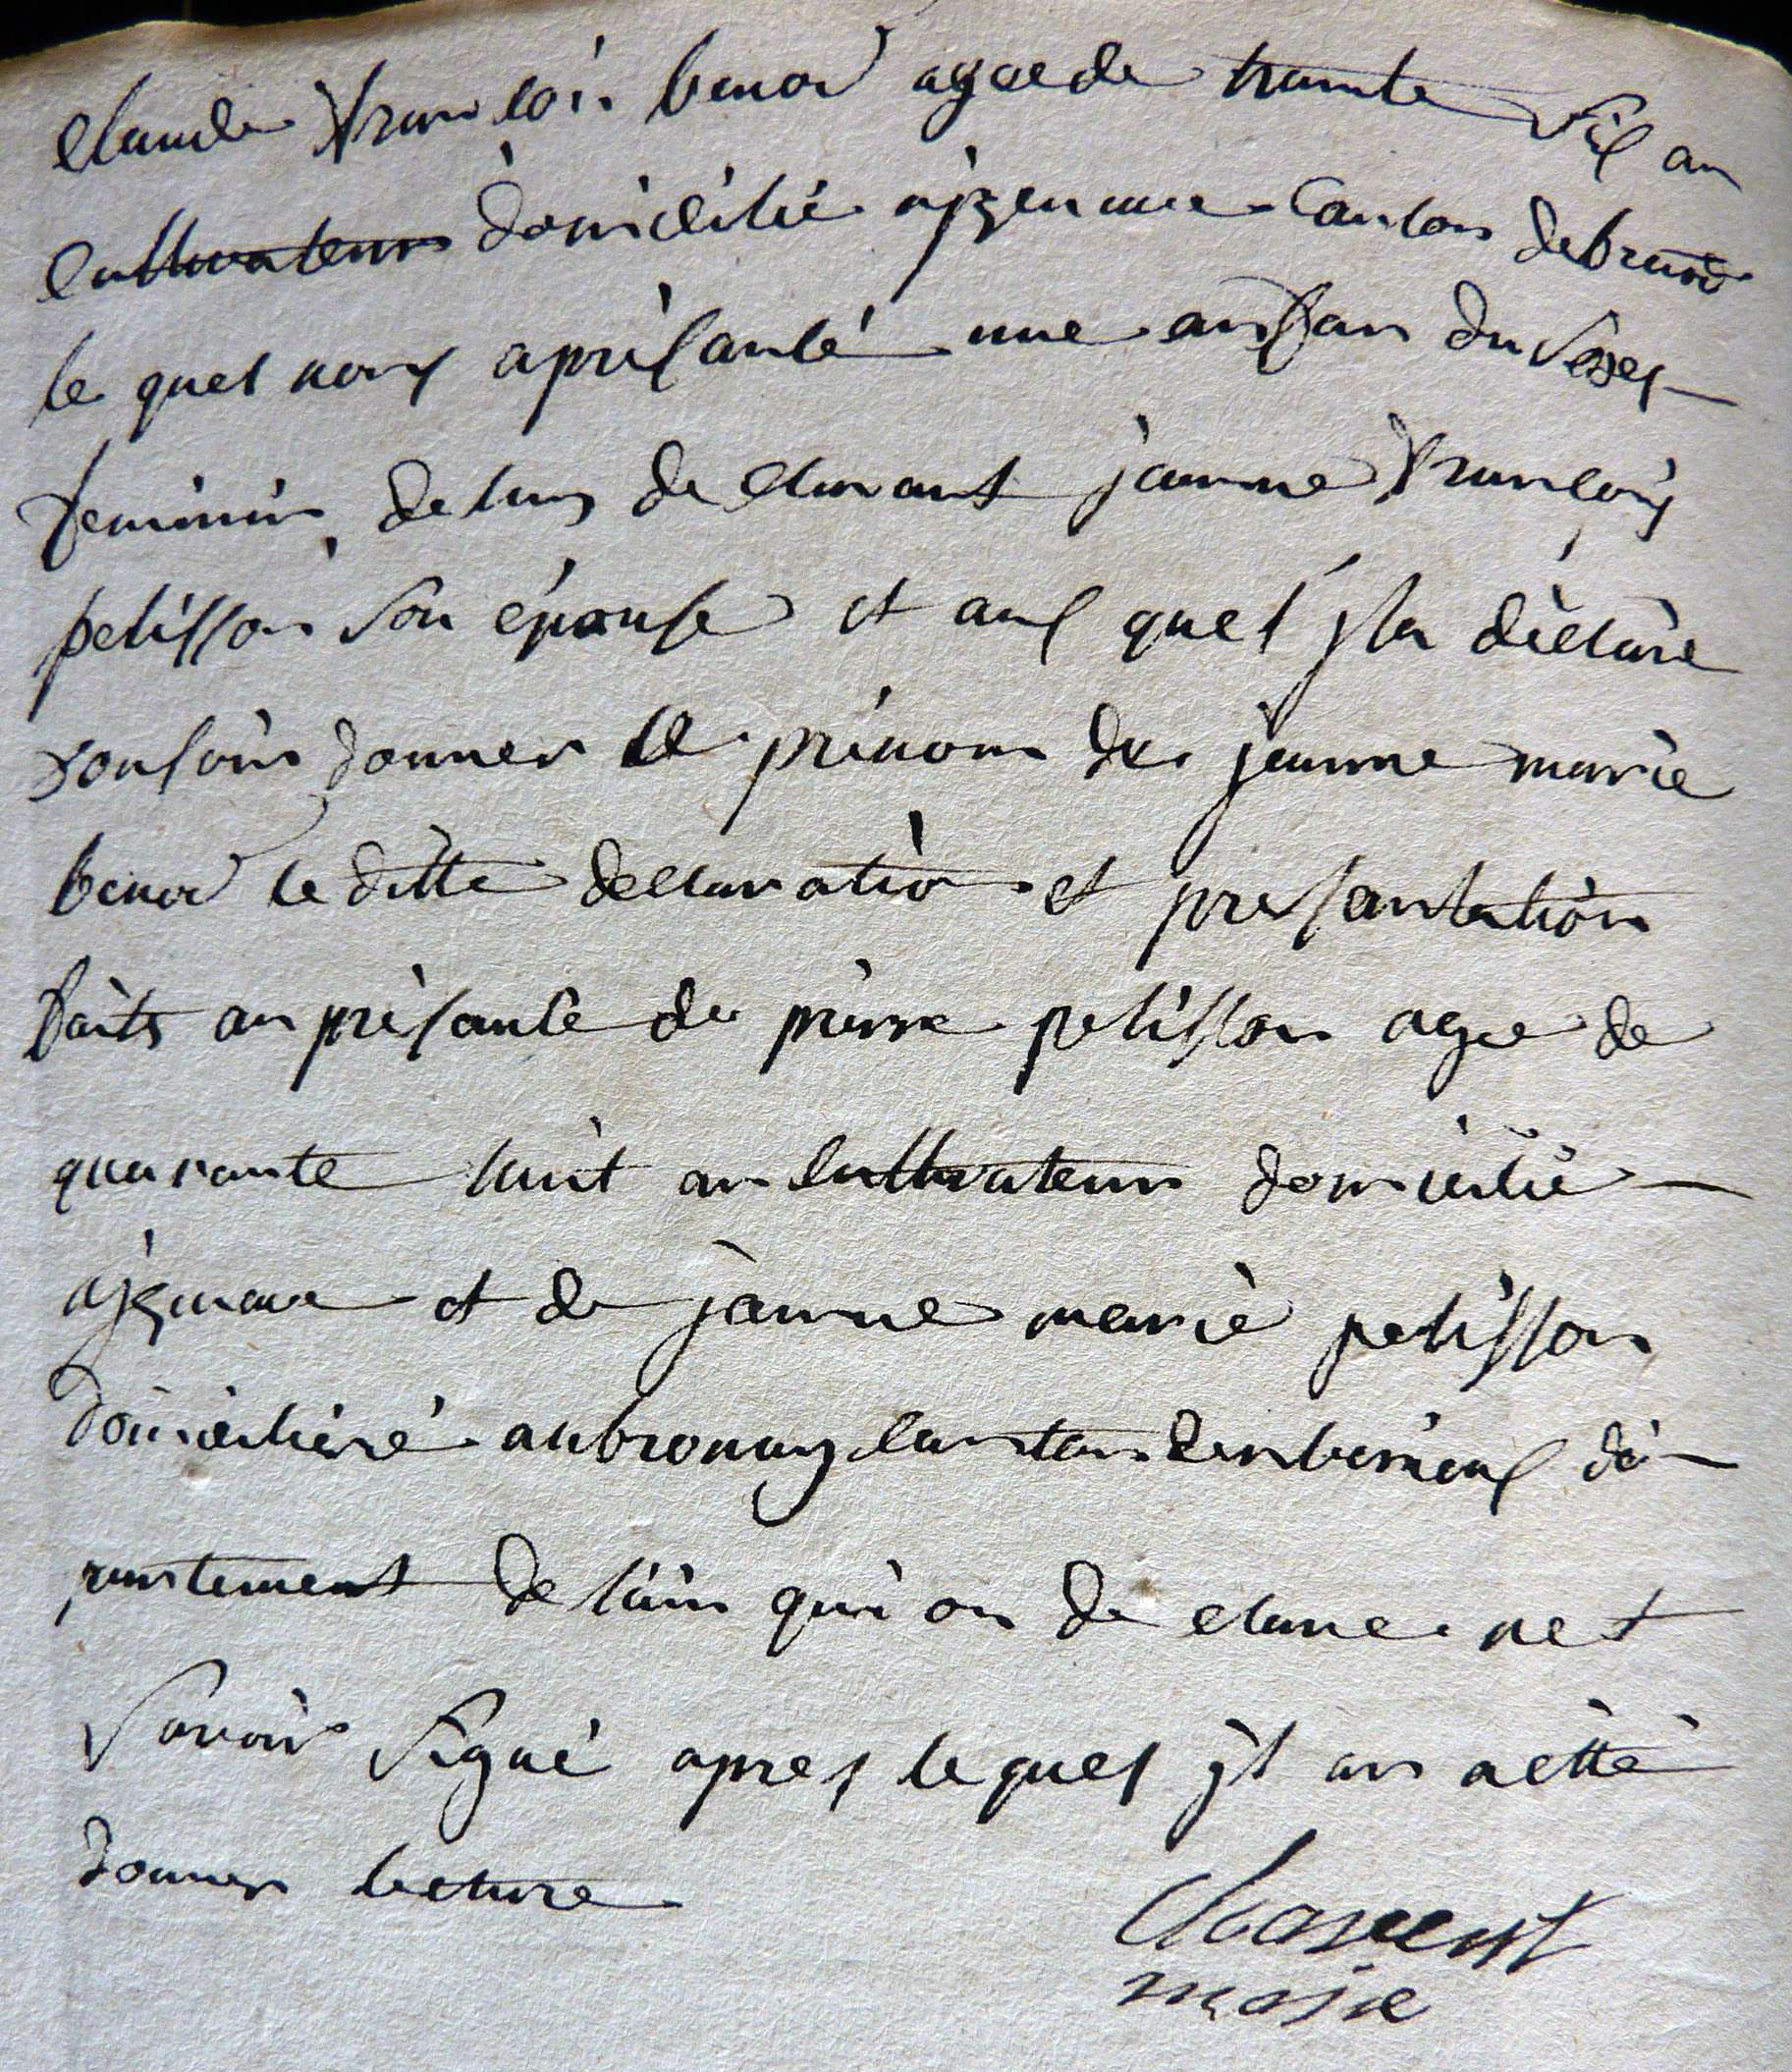 claude françoi benod agee de trante six an
cultivateur domicilié a izenave canton de brenod
le quel nous a présanté une anfan du sexes
feminin de luy declarant janne françois
pelisson son épouse et aus quel jl a déclaré
voulsoir donner le prénom de janne marie
benod le ditte declaration et presantation
faits an présante de pierre pelisson agee de
quarante huit an cultivateur domicilié
a izenave et de janne marie pelisson
domicilieré anbronay canton denberieus dé
partement de lain qui on de clare net
savoir signé apres le quel jl an a étté
donner lecture
maire